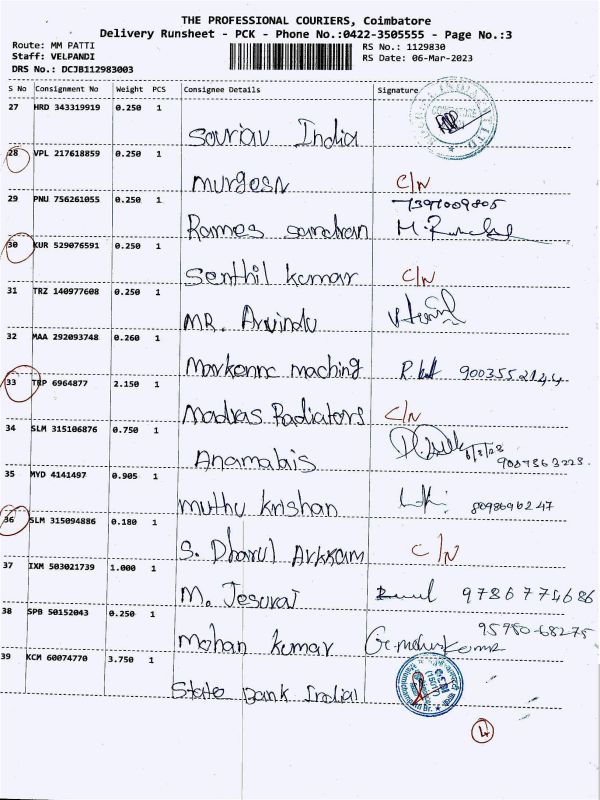 THE PROFESSIONAL COURIERS, Coimbatore
Delivery Runsheet - PCK - Phone No.:0422-3505555 - Page No.:3
Route: MM PATTI RS No.: 1129830
Staff: VELPANDI RS Date: 06-Mar-2023
DRS No.: DCJB112983003
S No Consignment No Weight PCS Consignee Details Signature
27 HRD 343319919 0.250 1
Sourav India
28 VPL 217618859 0.250 1
murgesn C/N
29 PNU 756261055 0.250 1 7397009805
Rames sandran
30 KUR 529076591 0.250 1
Senthil kumar C/N
31 TRZ 140977608 0.250 1
MR. Arvindu
32 MAA 292093748 0.260 1
Markonnc maching 9003552144
33 TRP 6964877 2.150 1
Madras Radiators C/N
34 SLM 315106876 0.750 1
Anamalais
35 MYD 4141497 0.905 1
muthu krishan
36 SLM 315094886 0.180 1
S. Dharul Arkkam C/N
37 IXM 503021739 1.000 1
M. Jesuraj 9786774686
38 SPB 50152043 0.250 1 95980-68275
Mohan kumar
39 KCM 60074770 3.750 1
State Bank India
4